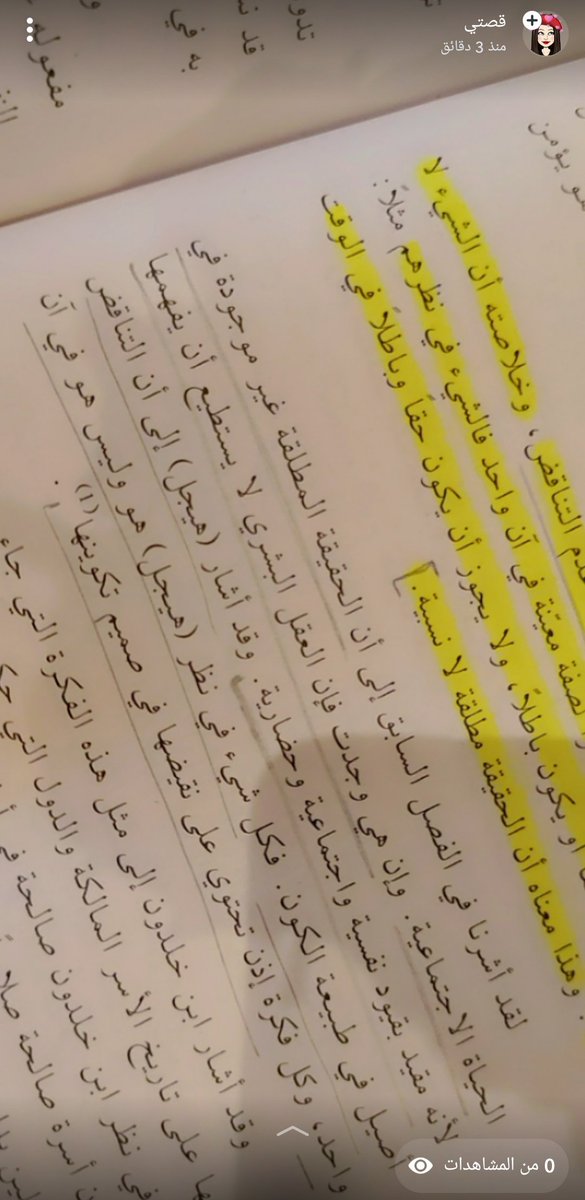 قصتي
منذ 3 دقائق
به في
مفعوله
هو يؤمن
التناقض، وخلاصته أن الشيء لا
معيّنة في آن واحد فالشيء في نظرهم مثلاً:
او يكون باطلاً، ولا يجوز أن يكون حقاً وباطلاً في الوقت
. وهذا معناه أن الحقيقة مطلقة لا نسبية.
لقد أشرنا في الفصل السابق إلى أن الحقيقة المطلقة غير موجودة في
الحياة الاجتماعية. وإن هي وجدت فإن العقل البشري لا يستطيع أن يفهمها
لأنه مقيد بقيود نفسية واجتماعية وحضارية. وقد أشار (هيجل) إلى أن التناقض
أصيل في طبيعة الكون. فكل شيء في نظر (هيجل) هو وليس هو في آن
واحد، وكل فكرة إذن تحتوي على نقيضها في صميم تكوينها(1).
وقد أشار ابن خلدون إلى مثل هذه الفكرة التي جاء
على تاريخ الأسر المالكة والدول التي
في نظر ابن خلدون صالحة في
أسرة صالحة
0 من المشاهدات